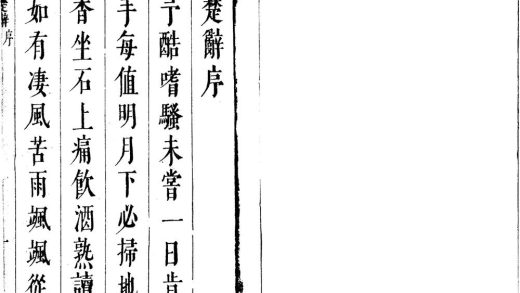 楚辭序
予酷嗜騷未嘗一日肯
手每值明月下必掃地
香坐石上痛飲酒熟讀
如有淒風苦雨颯颯從
辭序